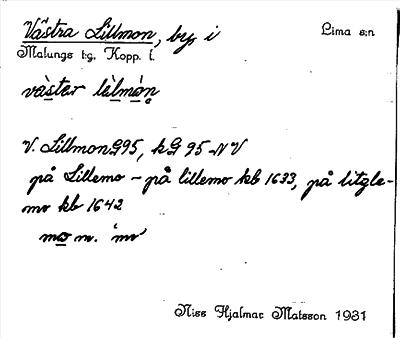 Västra Lillmon, by i Lima s:n
Malungs t:g. Kopp. l.
väster lèlmón
V. Lillmon G95, kG 95 NV
på Lillemo – på lillemo kb 1633, på litzle-
mo kb 1642
mo m. 'mo'
Niss Hjalmar Matsson 1931